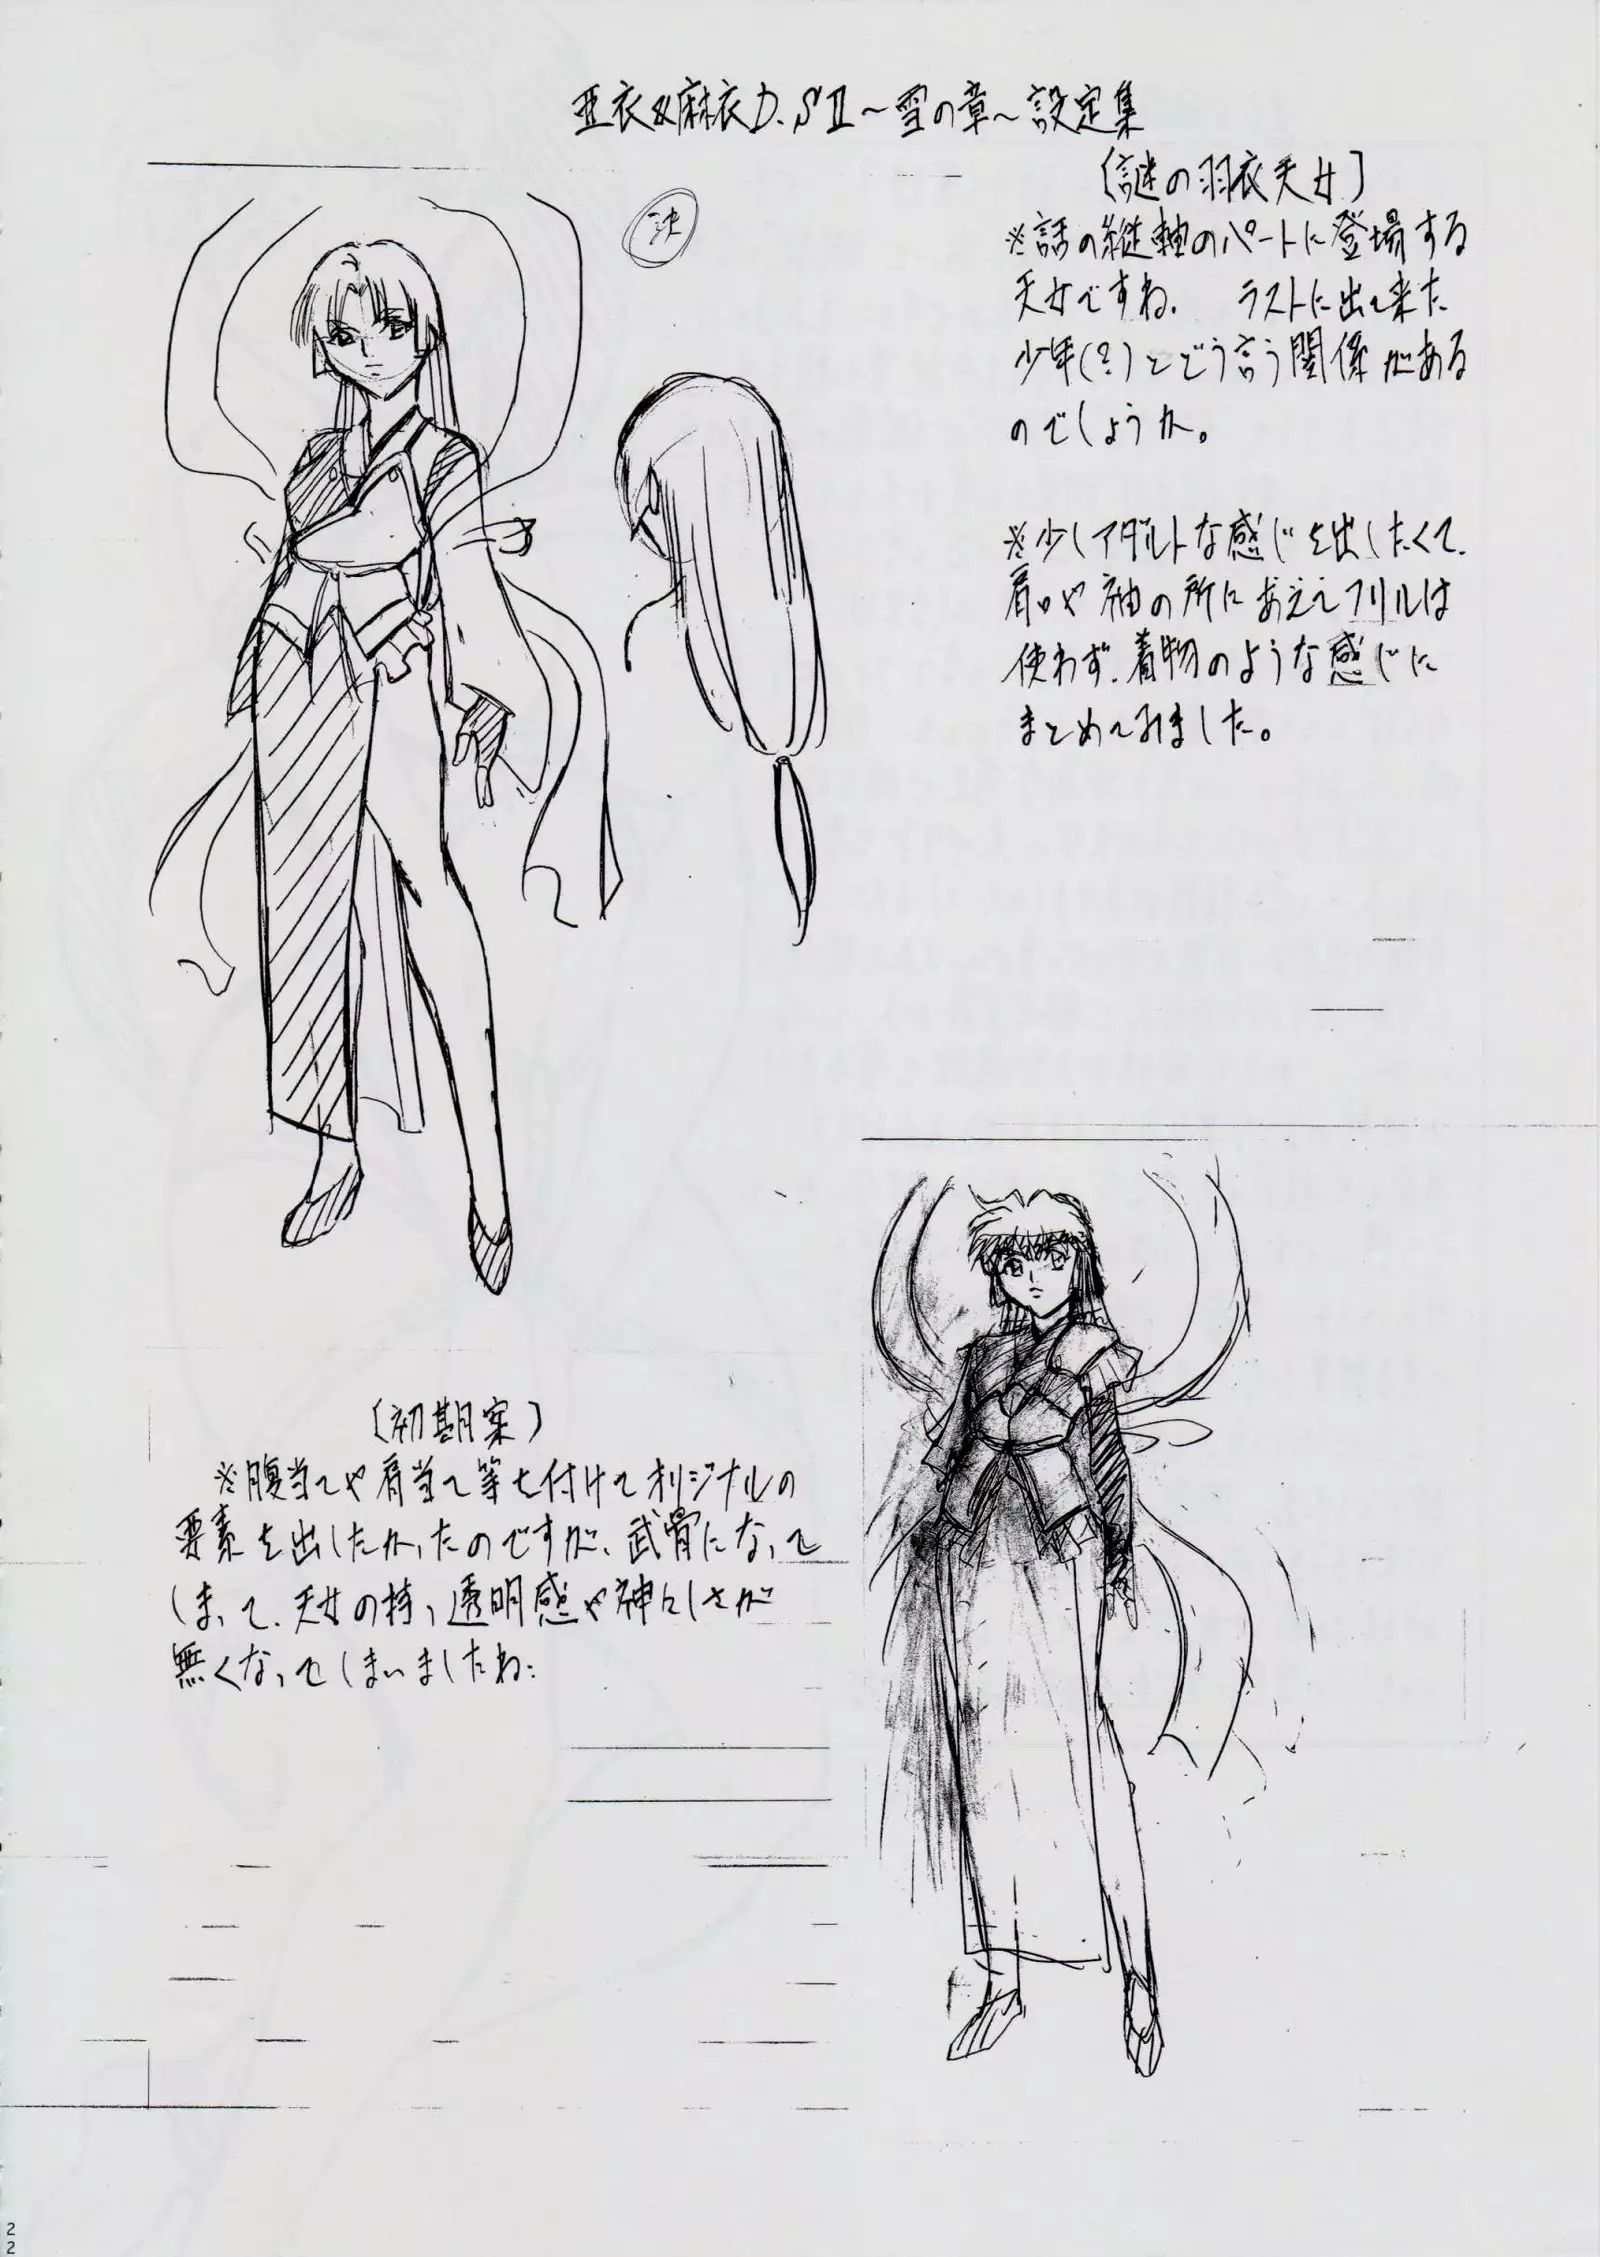 亜衣&麻衣D.SⅡ～雪の章～設定集
〔謎の羽衣天女〕
※話の縦軸のパートに登場する
天女ですね. ラストに出て来た
少年(?)とどう言う関係がある
のでしょうか。
※少しアダルトな感じを出したくて.
肩口や袖の所にあえてフリルは
使わず.着物のような感じに
まとめてみました。
決
〔初期案〕
※腹当てや肩当て等を付けてオリジナルの
要素を出したかったのですが、武骨になって
しまって、天女の持つ透明感や神々しさが
無くなってしまいましたね:
22